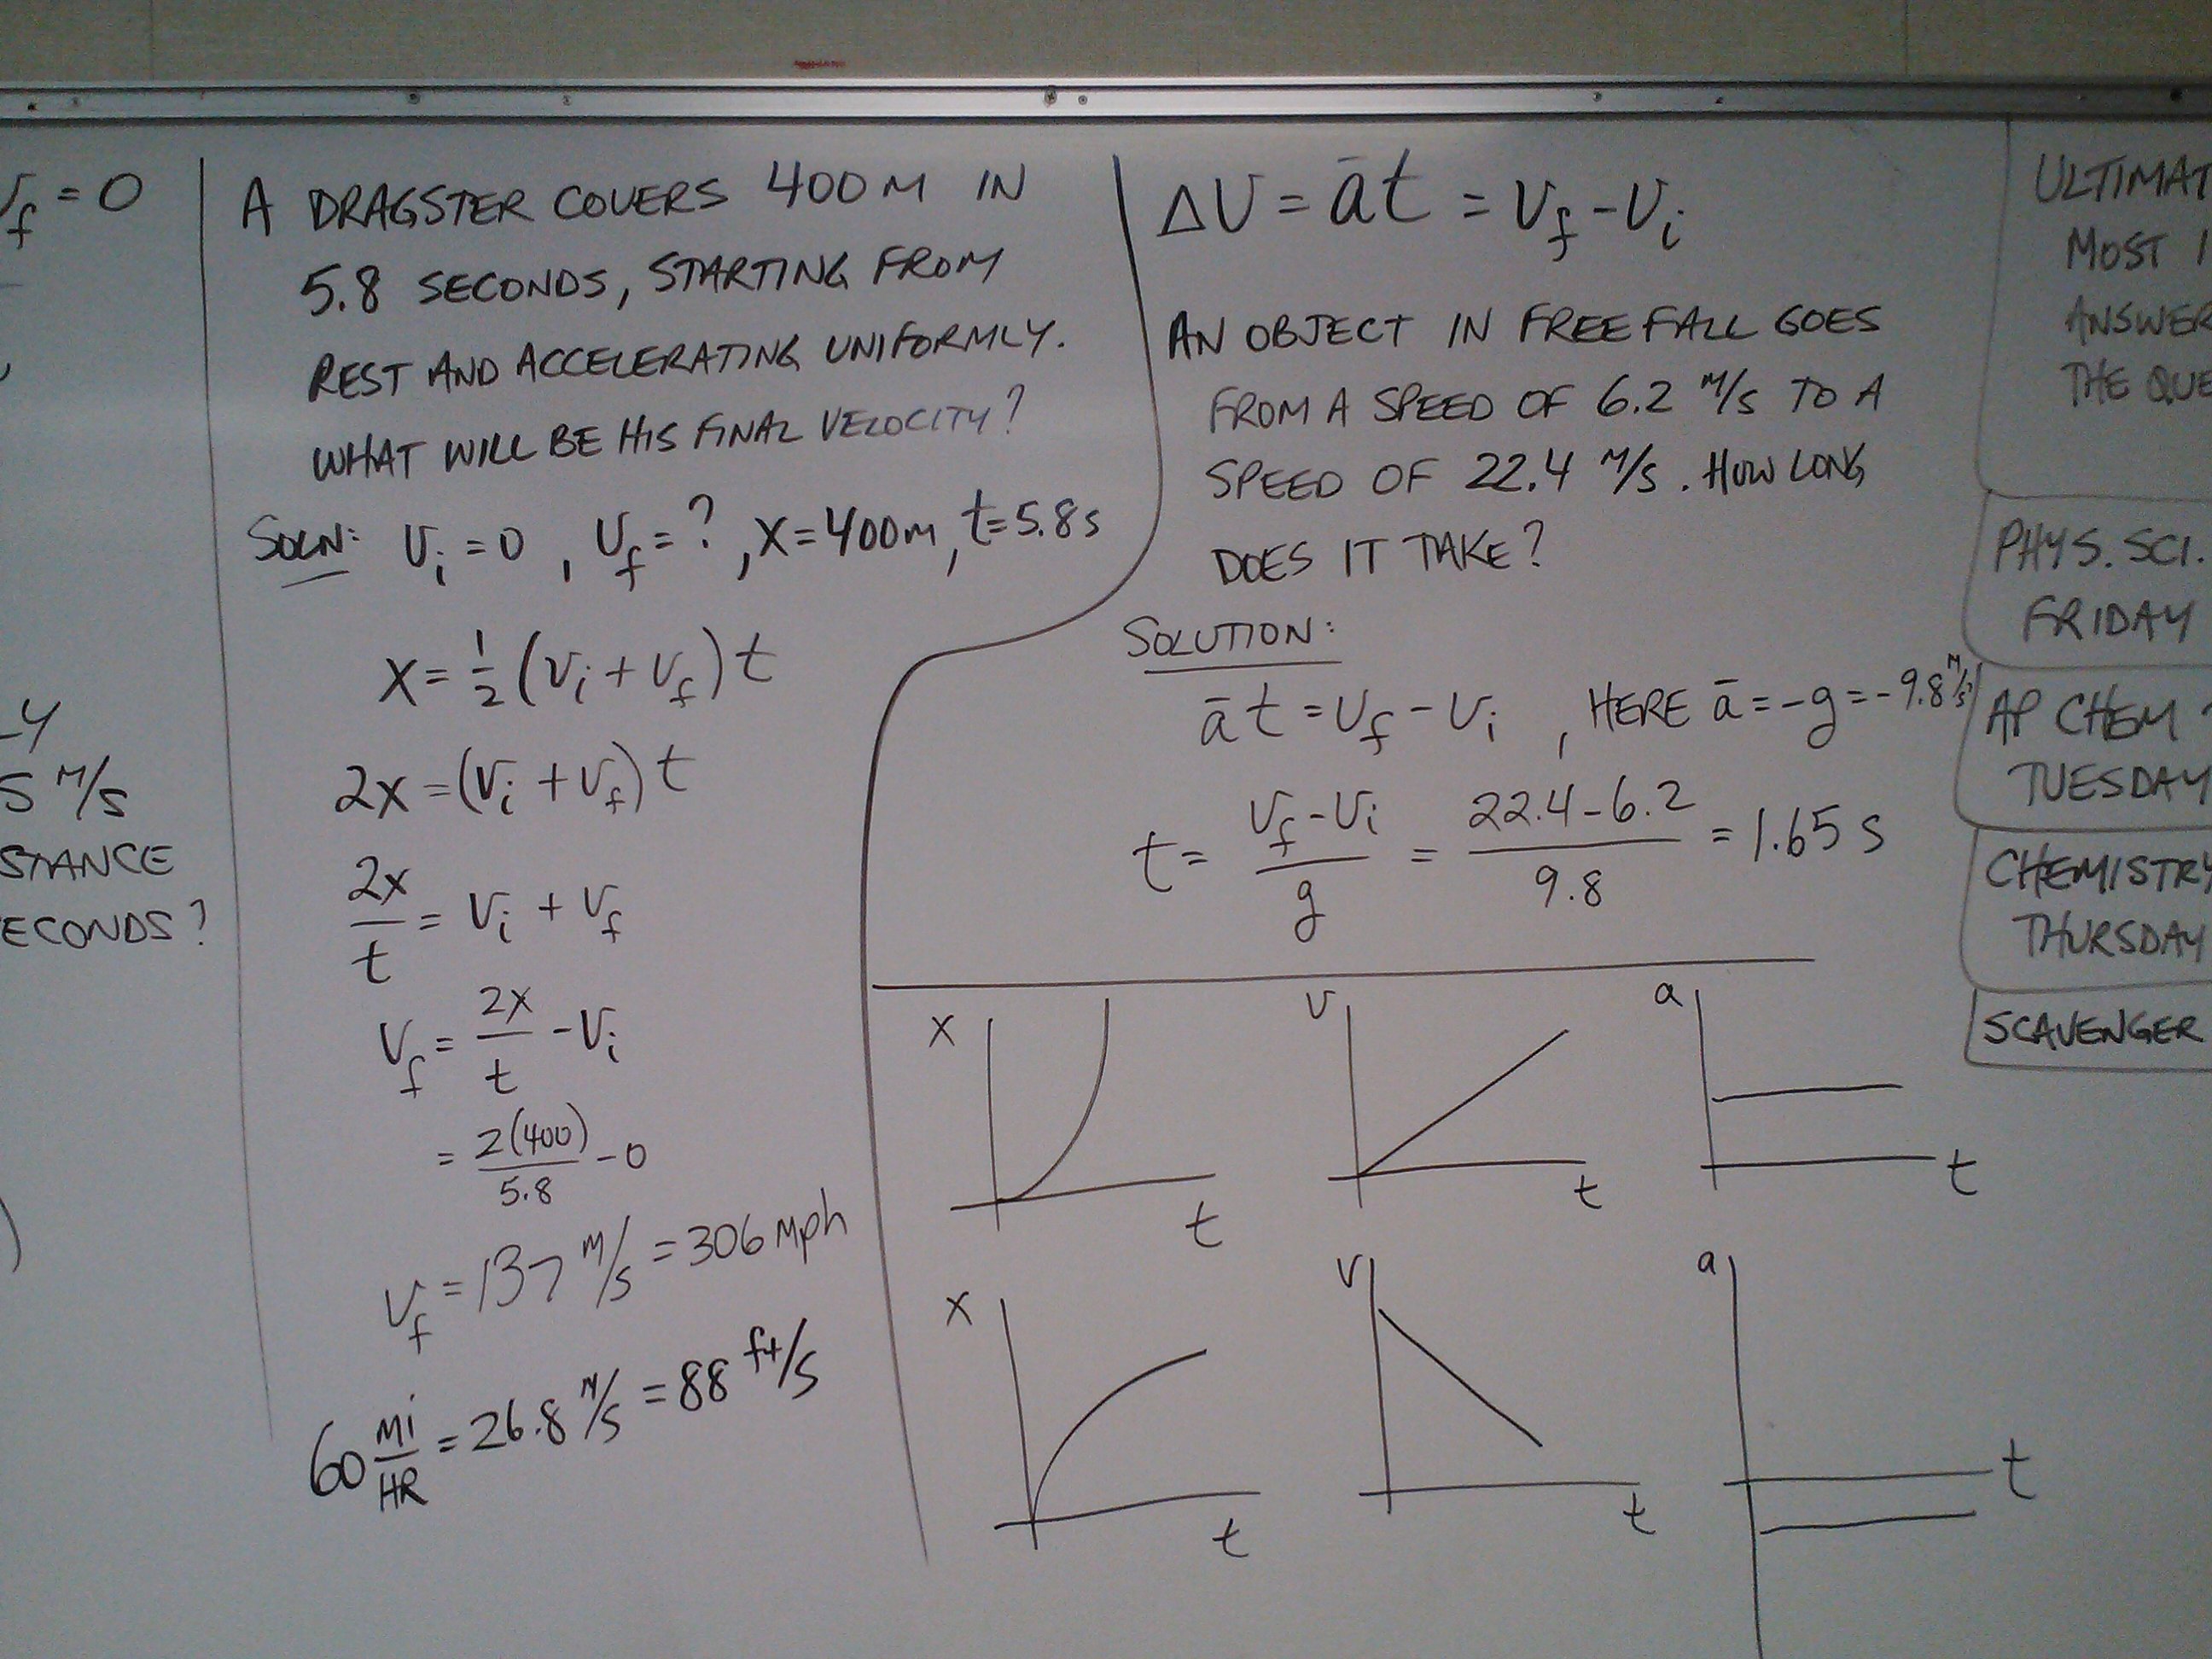 Vf = 0
-Y
5 M/S
STANCE
ECONDS?
)
A DRAGSTER COVERS 400M IN
5.8 SECONDS, STARTING FROM
REST AND ACCELERATING UNIFORMLY.
WHAT WILL BE HIS FINAL VELOCITY?
SOLN: Vi = 0, Vf = ?, X = 400m, t = 5.8 s
X = 1/2 (Vi + Vf) t
2X = (Vi + Vf) t
2X/t = Vi + Vf
Vf = 2X/t - Vi
= 2(400)/5.8 - 0
Vf = 137 M/S = 306 Mph
60 Mi/HR = 26.8 M/S = 88 ft/S
ΔV = āt = Vf - Vi
AN OBJECT IN FREE FALL GOES
FROM A SPEED OF 6.2 M/S TO A
SPEED OF 22.4 M/S. HOW LONG
DOES IT TAKE?
SOLUTION:
āt = Vf - Vi, HERE ā = -g = -9.8 M/s²
t = Vf - Vi/g = 22.4 - 6.2/9.8 = 1.65 s
X t
V t
a t
X t
V t
a t
ULTIMAT
MOST I
ANSWER
THE QUE
PHYS. SCI.
FRIDAY
AP CHEM -
TUESDAY
CHEMISTRY
THURSDAY
SCAVENGER